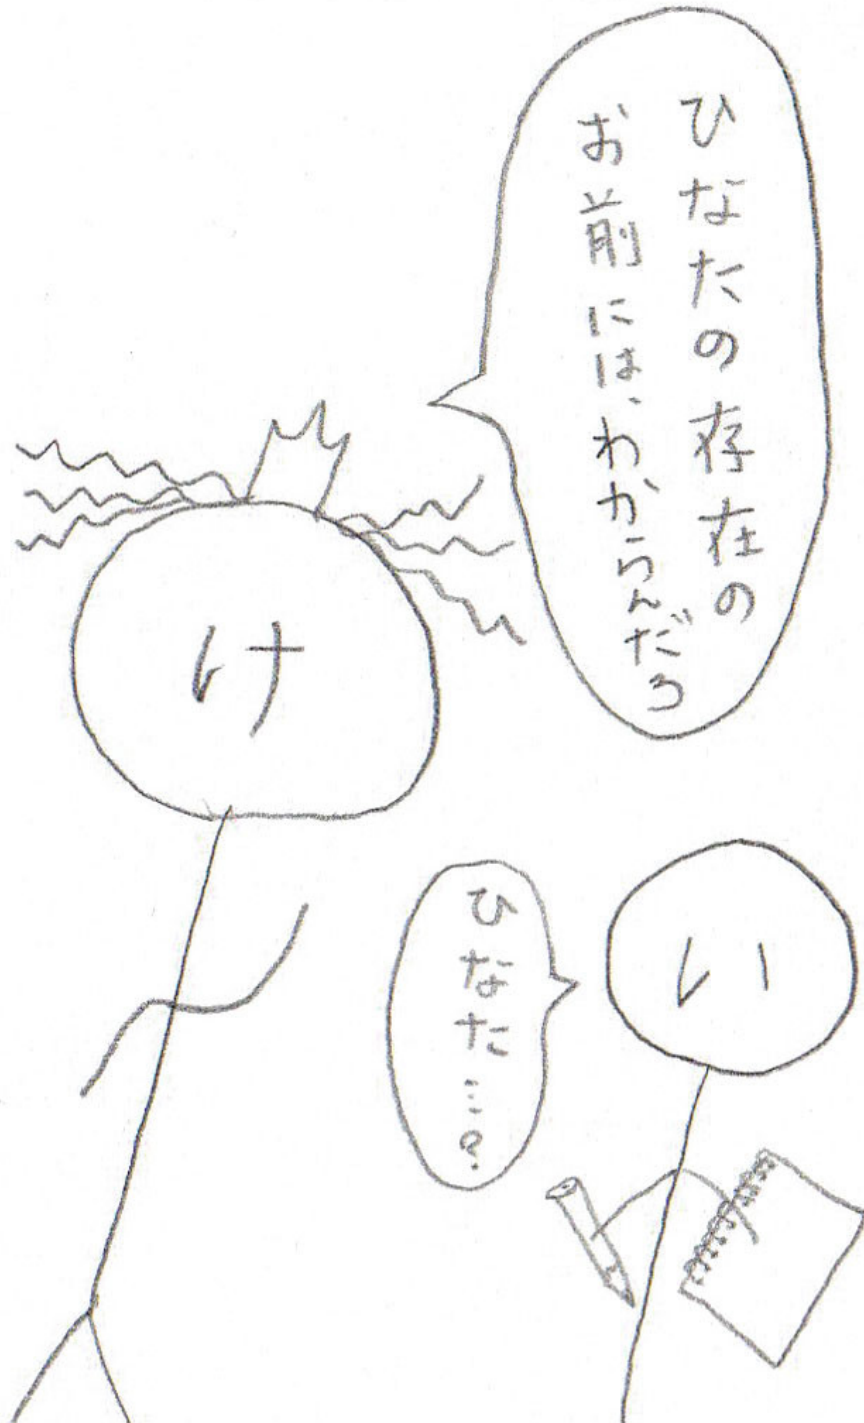 ひなたの存在の
お前には、わからんだろ
け
い
ひなた…?